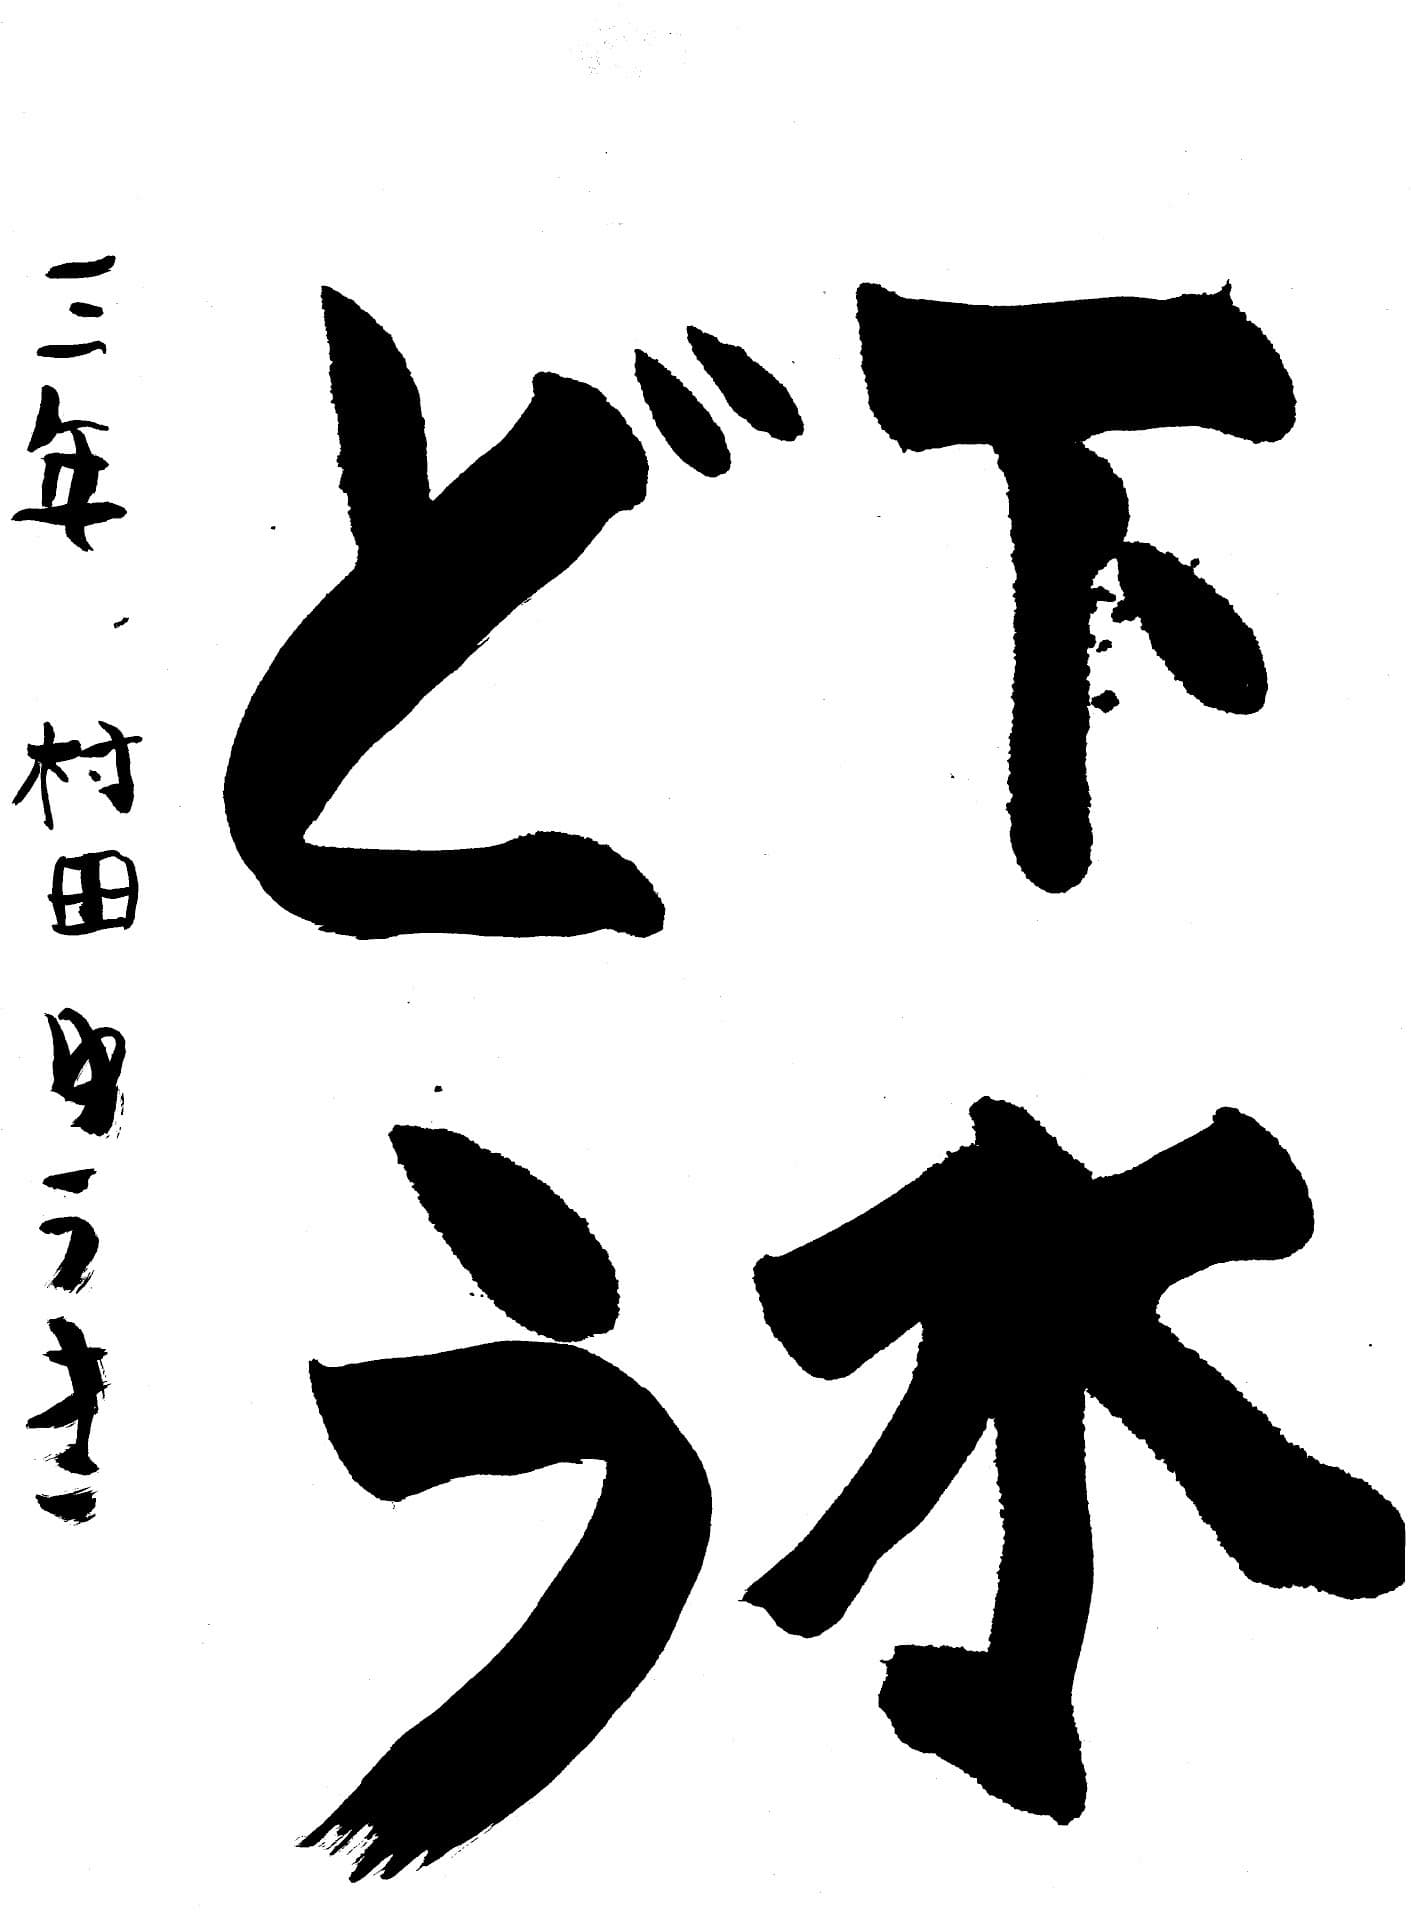 下水
どう
三年 村田 ゆうき